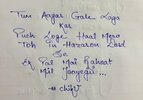 Tum Aagar Gale Laga
Kar
Puch Loge Haal Mera
Toh Un Hazaron Dard
Se
Ek Pal Mai Rahat
Mil Jayegi...